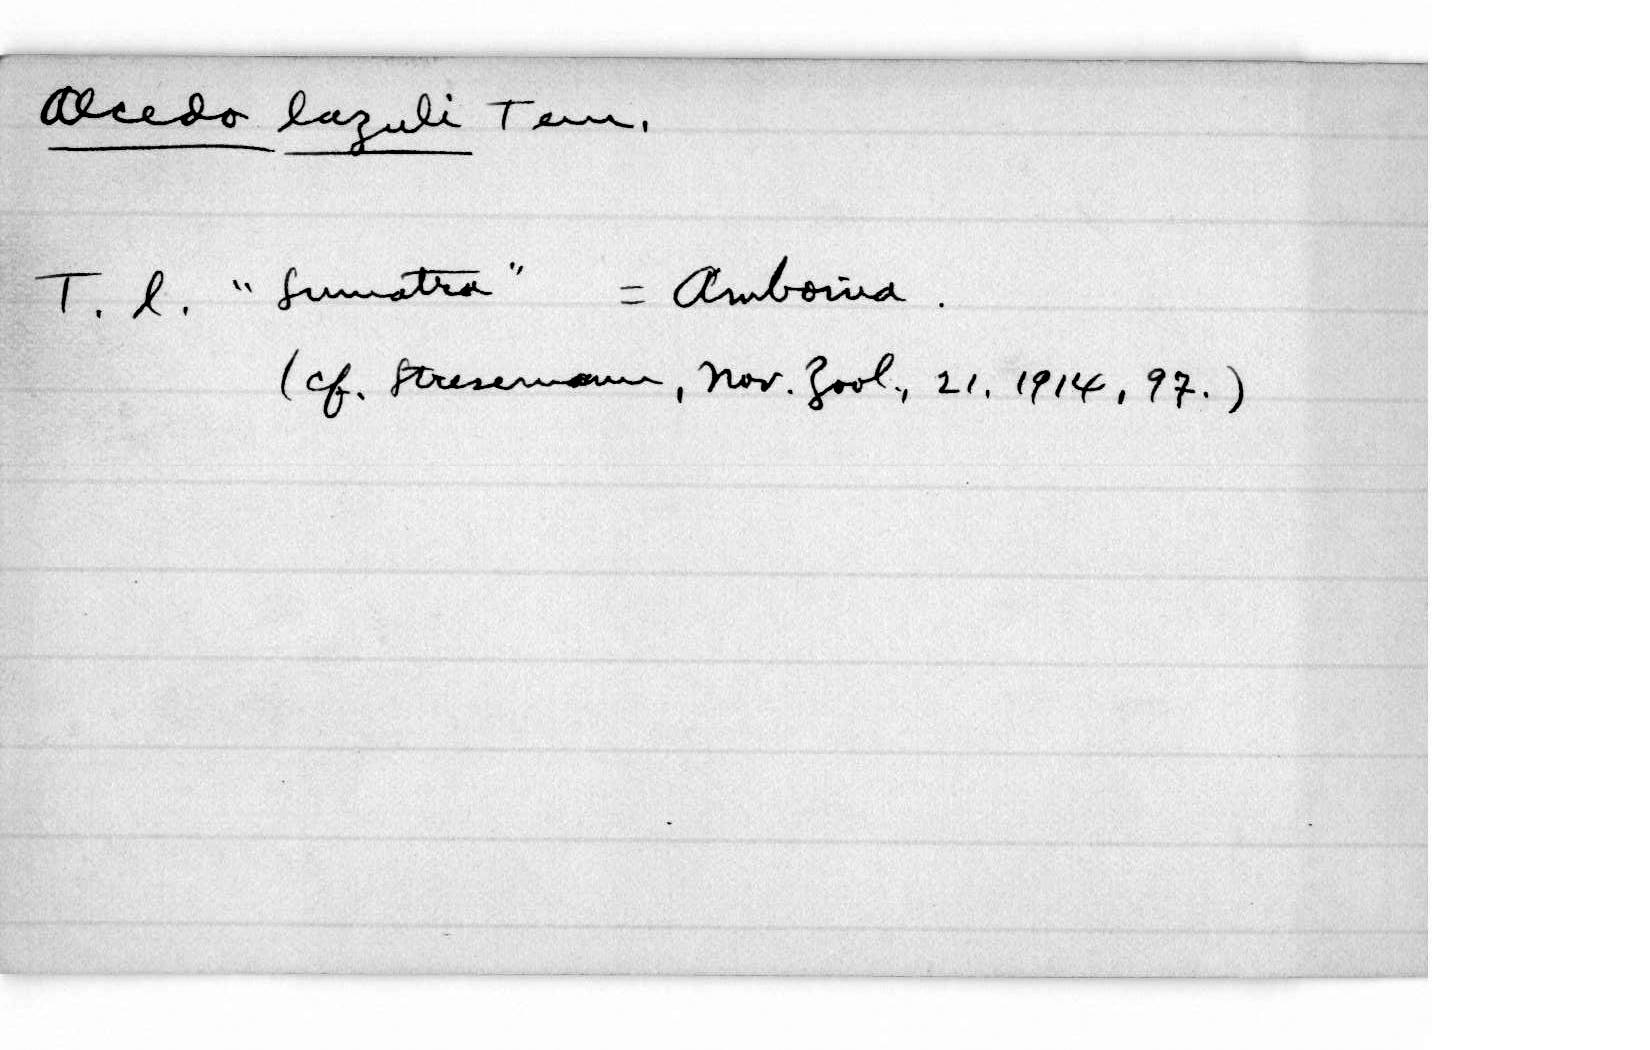 Alcedo lazuli Tem.
T. l. "Sumatra" = Amboina.
(cf. Stresemann, Nov. Zool., 21, 1914, 97.)